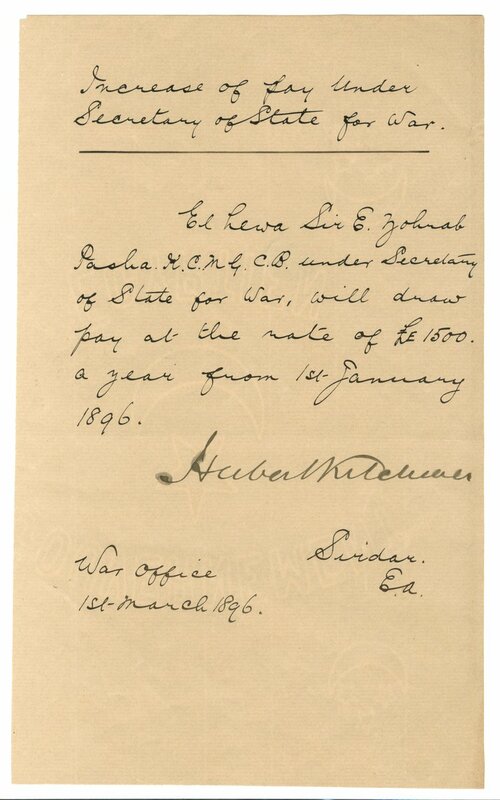 Increase of pay Under
Secretary of State for War.
El Lewa Sir E. Zohrab
Pasha. K.C.M.G. C.B. under Secretary
of State for War, will draw
pay at the rate of £E 1500.
a year from 1st January
1896.
Herbert Kitchener
Sirdar.
E.A.
War Office
1st March 1896.